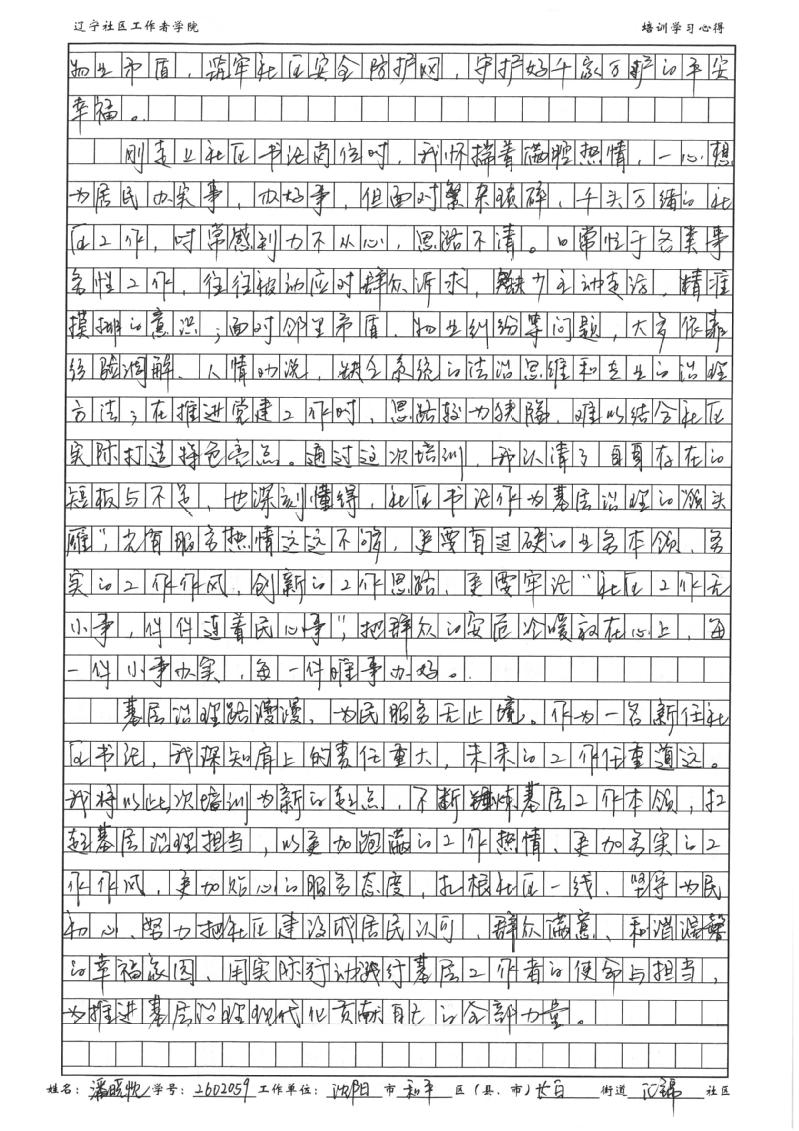 辽宁社区工作者学院 培训学习心得
物业矛盾，筑牢社区安全防护网，守护好千家万户的平安
幸福。
刚走上社区书记岗位时，我怀揣着满腔热情，一心想
为居民办实事，办好事，但面对繁杂琐碎，千头万绪的社
区工作，时常感到力不从心，思路不清。日常忙于各类事
务性工作，往往被动应对群众诉求，缺少主动走访，精准
摸排的意识；面对邻里矛盾，物业纠纷等问题，大多依靠
经验调解、人情劝说，缺乏系统的法治思维和专业的治理
方法；在推进党建工作时，思路较为狭隘，难以结合社区
实际打造特色亮点。通过这次培训，我认清了自身存在的
短板与不足，也深刻懂得，社区书记作为基层治理的“领头
雁”，光有服务热情远远不够，更要有过硬的业务本领、务
实的工作作风，创新的工作思路，更要牢记“社区工作无
小事，件件连着民心事”，把群众的安危冷暖放在心上，每
一件小事办实，每一件难事办好。
基层治理路漫漫，为民服务无止境。作为一名新任社
区书记，我深知肩上的责任重大，未来的工作任重道远。
我将以此次培训为新的起点，不断锤炼基层工作本领，扛
起基层治理担当，以更加饱满的工作热情、更加务实的工
作作风，更加贴心的服务态度，扎根社区一线、坚守为民
初心、努力把社区建设成居民认可，群众满意、和谐温馨
的幸福家园、用实际行动践行基层工作者的使命与担当，
为推进基层治理现代化贡献自己的全部力量。
姓名：潘晓 学号：2602059 工作单位：沈阳 市 和平 区（县、市）长白 街道 汇锦 社区